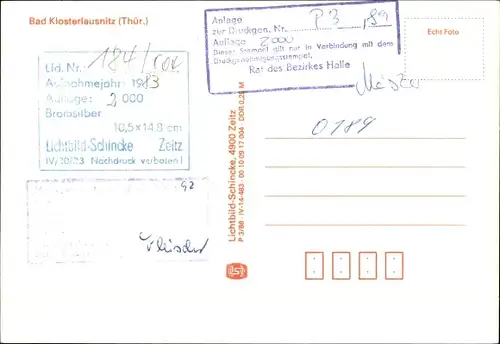 Bad Klosterlausnitz (Thür.)
Anlage
zur Druckgen. Nr. P3 / 89
Auflage 2000
Dieser Stempel gilt nur in Verbindung mit dem
Druckgenehmigungsstempel.
Rat des Bezirkes Halle
Echt Foto
Lfd. Nr. 184/
Aufnahmejahr: 1983
Auflage: 2 000
Bromsilber
10,5x14,8 cm
Lichtbild-Schincke Zeitz
IV/20/23 Nachdruck verboten!
0189
Lichtbild-Schincke, 4900 Zeitz
P 3/88 · IV-14-483 · 00 10 09 17 004 DDR 0,25 M
G2